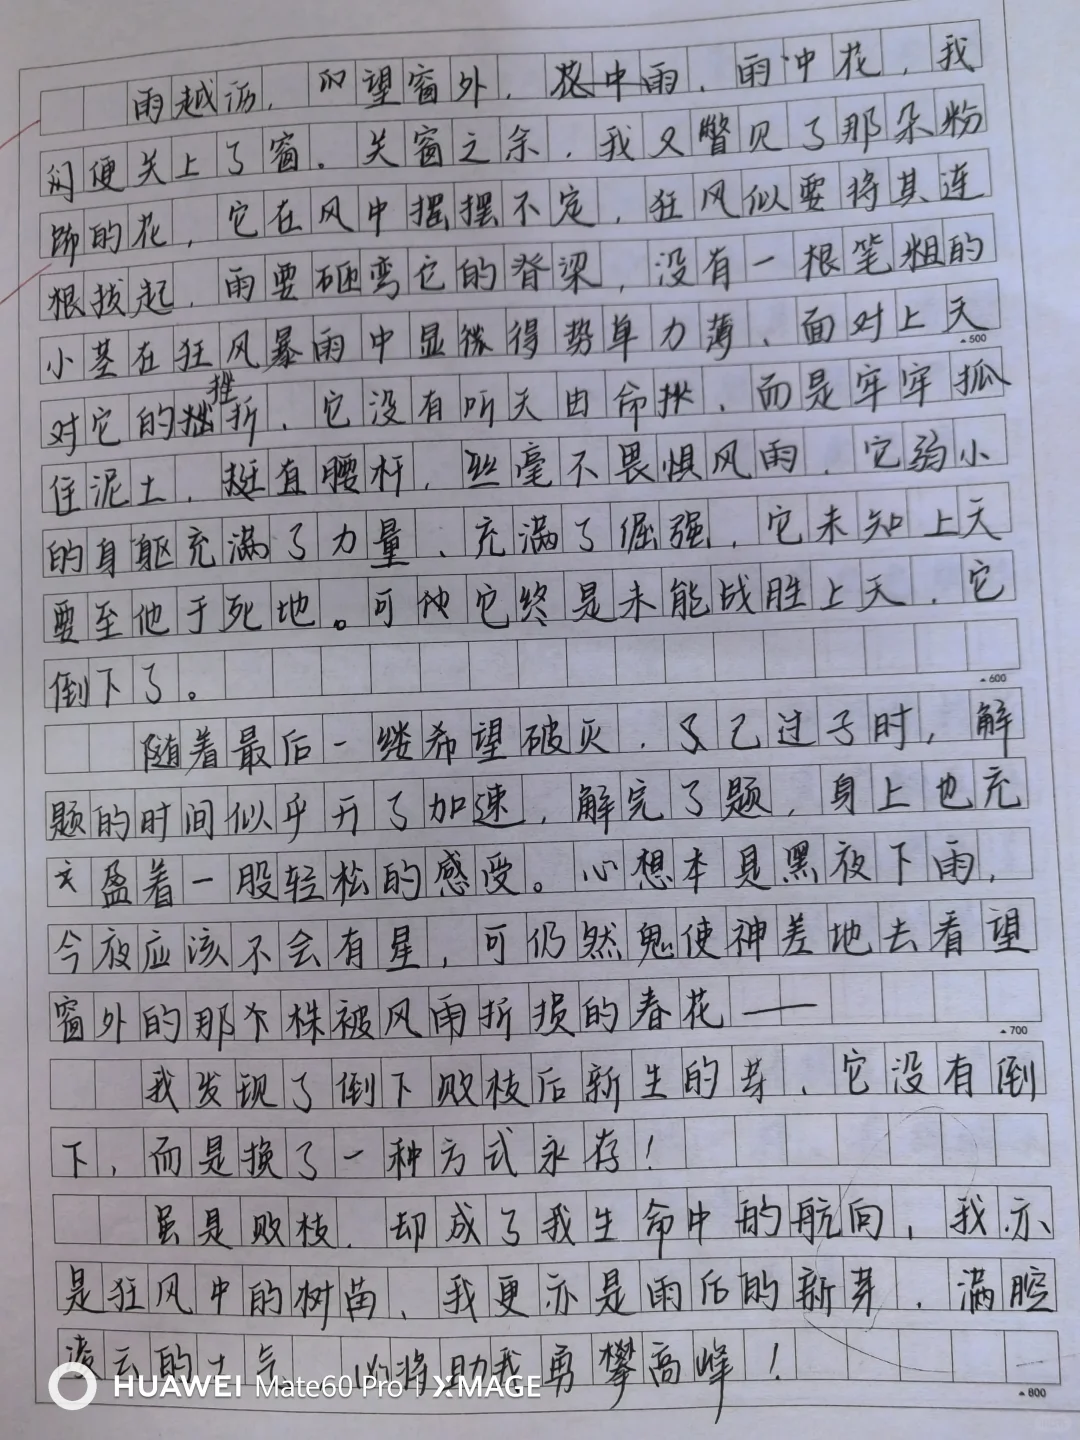 雨越沥，仰望窗外，花中雨，雨冲花，我
闷便关上了窗。关窗之余，我又瞥见了那朵粉
饰的花，它在风中摇摆不定，狂风似要将其连
根拔起，雨要砸弯它的脊梁，没有一根笔粗的
小茎在狂风暴雨中显得势单力薄、面对上天
500
对它的挫折，它没有听天由命，而是牢牢抓
住泥土，挺直腰杆，丝毫不畏惧风雨，它弱小
的身躯充满了力量、充满了倔强，它未知上天
要至他于死地。可它终是未能战胜上天，它
倒下了。
600
随着最后一缕希望破灭，已过子时，解
题的时间似乎开了加速，解完了题，身上也充
盈着一股轻松的感受。心想本是黑夜下雨，
今夜应该不会有星，可仍然鬼使神差地去看望
窗外的那株被风雨折损的春花——
700
我发现了倒下败枝后新生的芽、它没有倒
下，而是换了一种方式永存！
虽是败枝，却成了我生命中的航向，我亦
是狂风中的树苗、我更亦是雨后的新芽，满腔
凌云的士气，必将助我勇攀高峰！
800
HUAWEI Mate60 Pro | XMAGE